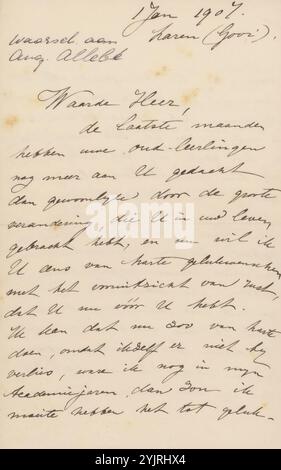 1 Jan 1907.
Laren (Gooi).
waarsch. aan
Aug. Allebé
Waarde Heer,
de laatste maanden
hebben uwe oud-leerlingen
nog meer aan U gedacht
dan gewoonlijk door de groote
verandering, die U in uw leven
gebracht hebt, en nu wil ik
U eens van harte gelukwenschen
met het vooruitzicht van rust,
dat U nu vóór U hebt.
Ik kan dat nu zoo van harte
doen, omdat ikzelf er niet bij
verlies, ware ik nog in mijn
Academiejaren, dan zou ik
moeite hebben het tot geluk-
alamy
Image ID: 2JYJRHX4
www.alamy.com